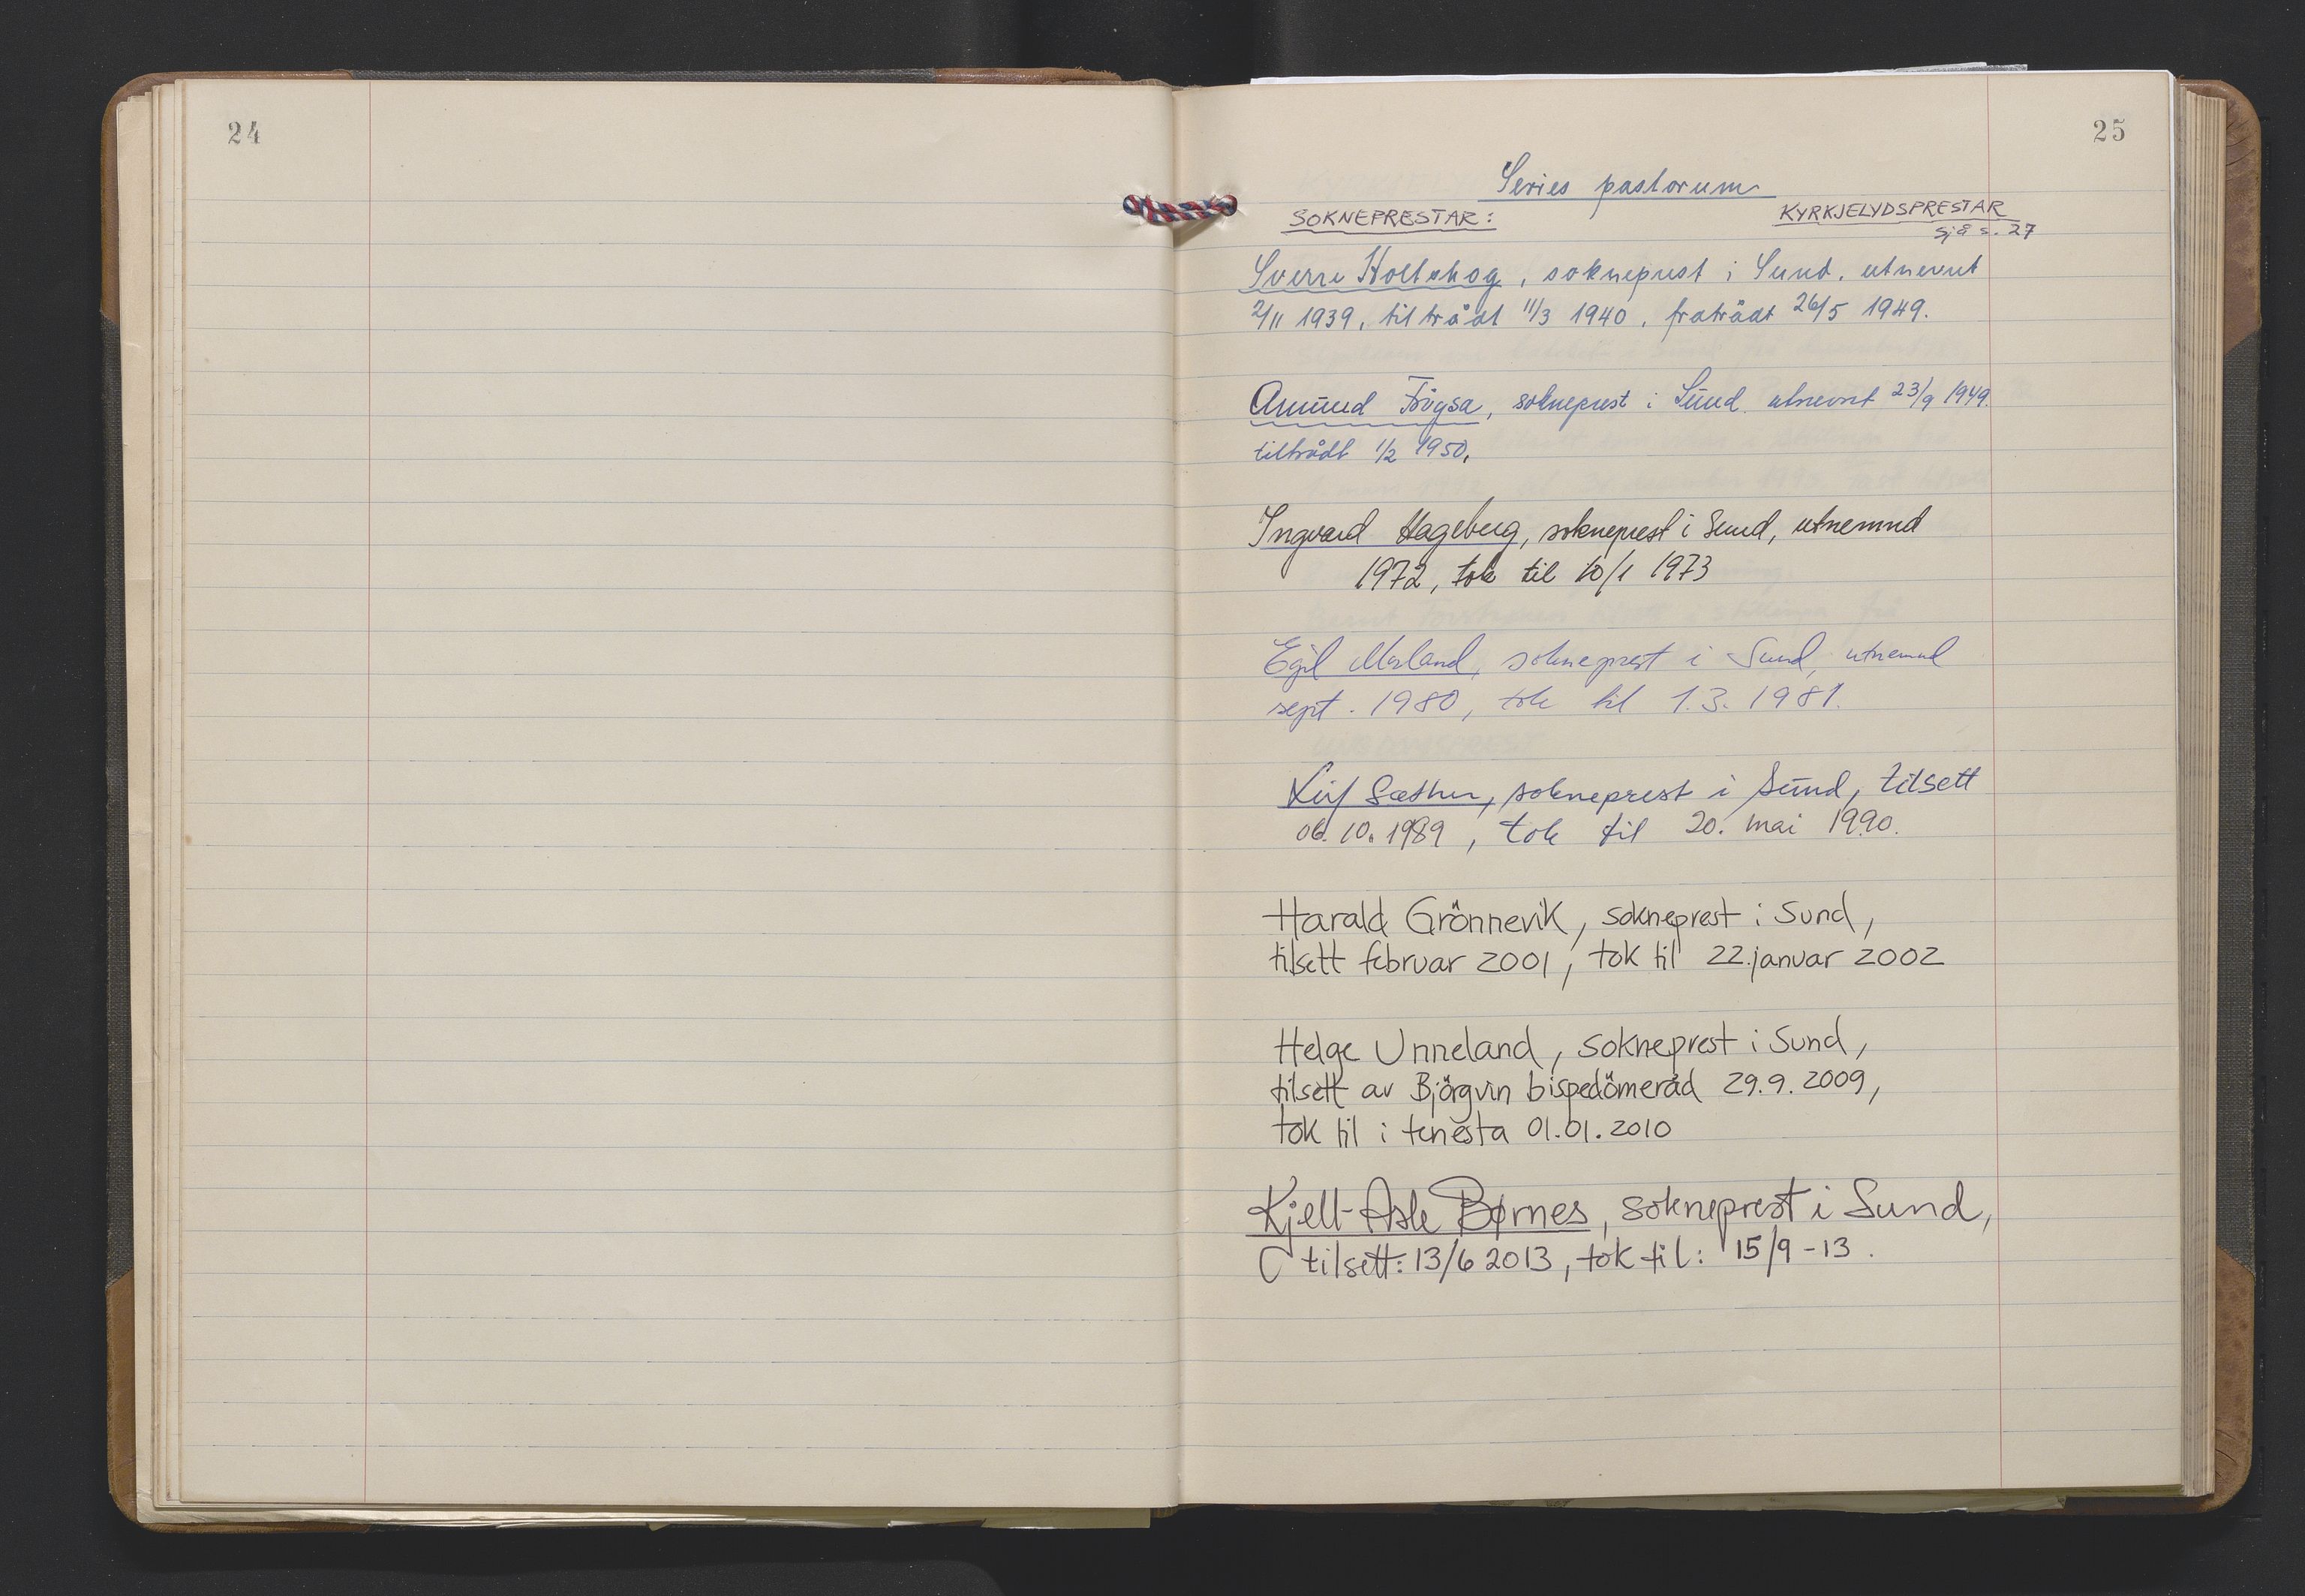 24
25
Series pastorum
SOKNEPRESTAR:
KYRKJELYDSPRESTAR
sjå s. 27
Sverre Holtskog, sokneprest i Sund, utnevnt
2/11 1939, tiltrådt 11/3 1940, fratrådt 26/5 1949.
Amund Fröysa, sokneprest i Sund utnevnt 23/9 1949.
tiltrådt 1/2 1950.
Ingvard Hageberg, sokneprest i Sund, utnemnd
1972, tok til 10/1 1973
Egil Morland, sokneprest i Sund, utnemnd
sept. 1980, tok til 1.3.1981.
Leif Sæther, sokneprest i Sund, tilsett
06.10.1989, tok til 20. mai 1990.
Harald Grönnevik, sokneprest i Sund,
tilsett februar 2001, tok til 22.januar 2002
Helge Unneland, sokneprest i Sund,
tilsett av Björgvin bispedömeråd 29.9.2009,
tok til i tenesta 01.01.2010
Kjell-Asle Børnes, sokneprest i Sund,
tilsett: 13/6 2013, tok til: 15/9-13.